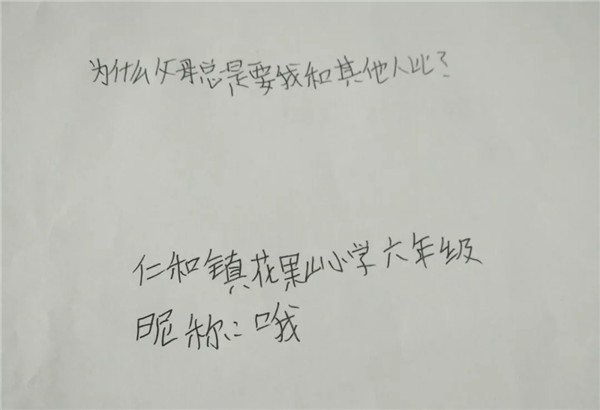 为什么父母总是要我和其他人比？
仁和镇花果山小学六年级
昵称：哦